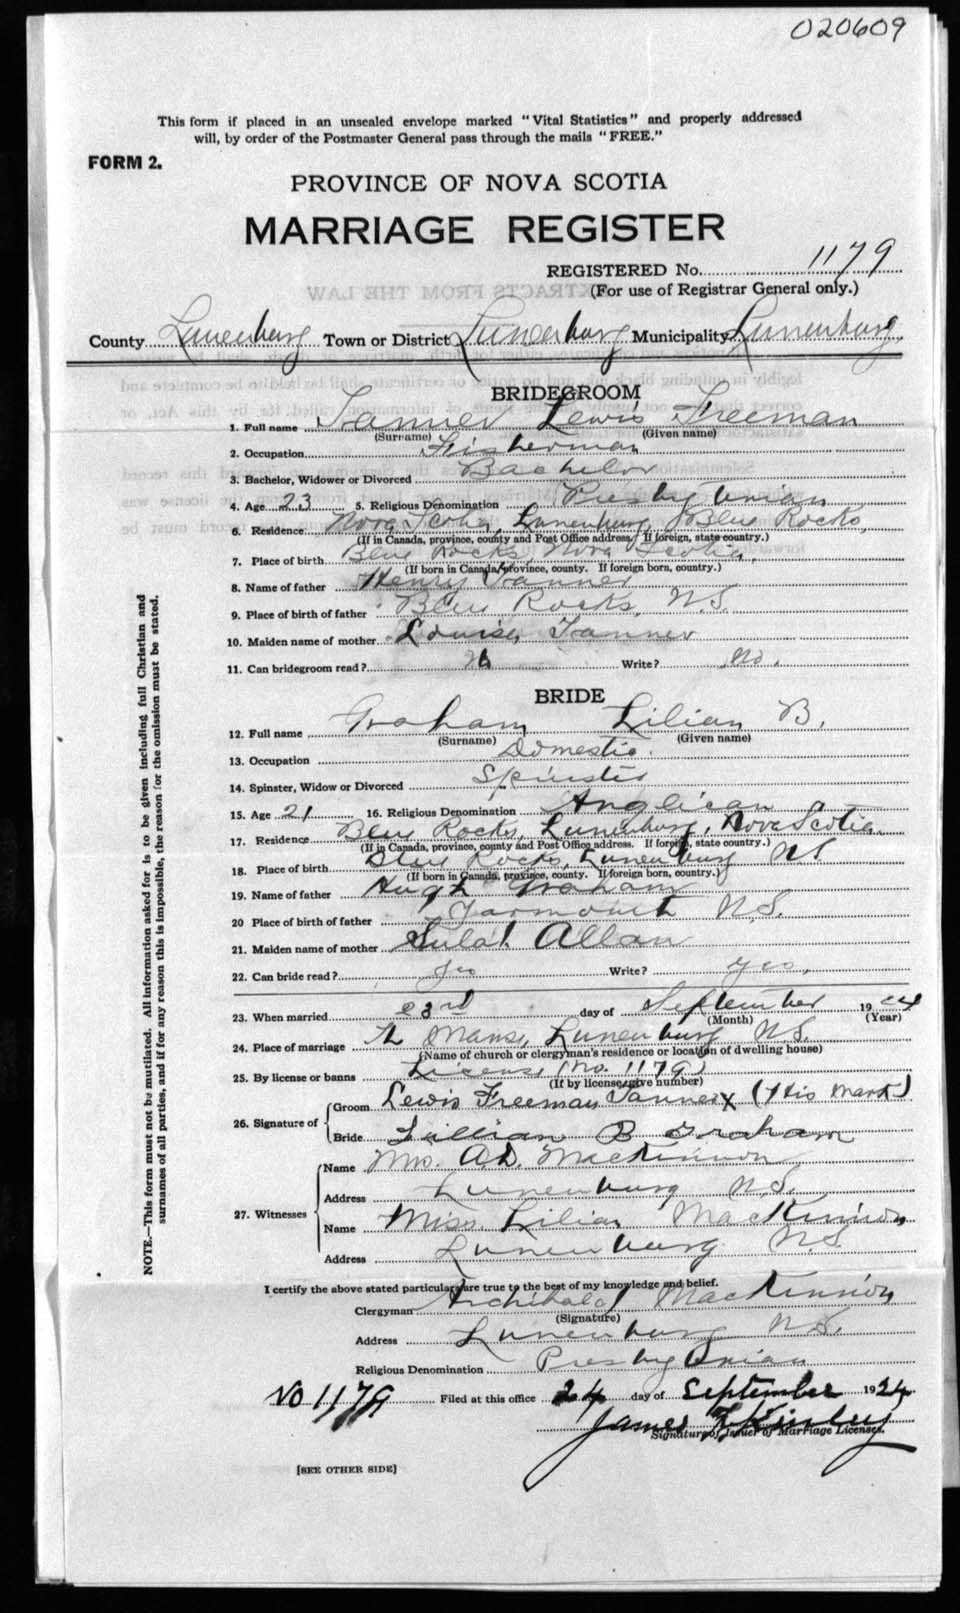 020609
This form if placed in an unsealed envelope marked "Vital Statistics" and properly addressed
will, by order of the Postmaster General pass through the mails "FREE."
FORM 2.
PROVINCE OF NOVA SCOTIA
MARRIAGE REGISTER
REGISTERED No. 1179
(For use of Registrar General only.)
County Lunenburg Town or District Lunenburg Municipality Lunenburg
BRIDEGROOM
1. Full name Tanner Lewis Freeman
(Surname) (Given name)
2. Occupation Fisherman
3. Bachelor, Widower or Divorced Bachelor
4. Age 23 5. Religious Denomination Presbyterian
6. Residence Nova Scotia, Lunenburg, Blue Rocks,
(If in Canada, province, county and Post Office address. If foreign, state country.)
7. Place of birth Blue Rocks Nova Scotia,
(If born in Canada, province, county. If foreign born, country.)
8. Name of father Henry Tanner
9. Place of birth of father Blue Rocks, N.S.
10. Maiden name of mother Louise Tanner
11. Can bridegroom read? No Write? no.
BRIDE
12. Full name Graham Lilian B.
(Surname) (Given name)
13. Occupation Domestic.
14. Spinster, Widow or Divorced Spinster
15. Age 21 16. Religious Denomination Anglican
17. Residence Blue Rocks, Lunenburg, Nova Scotia
(If in Canada, province, county and Post Office address. If foreign, state country.)
18. Place of birth Blue Rocks, Lunenburg N.S.
(If born in Canada, province, county. If foreign born, country.)
19. Name of father Hugh Graham
20 Place of birth of father Yarmouth N.S.
21. Maiden name of mother Allan
22. Can bride read? yes Write? yes.
23. When married 23rd day of September 1924
(Month) (Year)
24. Place of marriage The Manse, Lunenburg N.S.
(Name of church or clergyman's residence or location of dwelling house)
25. By license or banns License (No. 1179)
(If by license, give number)
26. Signature of
Groom Lewis Freeman Tanner X (His Mark)
Bride Lillian B Graham
27. Witnesses
Name Mrs. A.D. MacKinnon
Address Lunenburg N.S.
Name Miss Lilian MacKinnon
Address Lunenburg N.S.
I certify the above stated particulars are true to the best of my knowledge and belief.
Clergyman Archibald MacKinnon
(Signature)
Address Lunenburg N.S.
Religious Denomination Presbyterian
No 1179 Filed at this office 24 day of September 1924
James Kinley
Signature of Issuer of Marriage Licenses.
[SEE OTHER SIDE]
NOTE.—This form must not be mutilated. All information asked for is to be given including full Christian and
surnames of all parties, and if for any reason this is impossible, the reason for the omission must be stated.